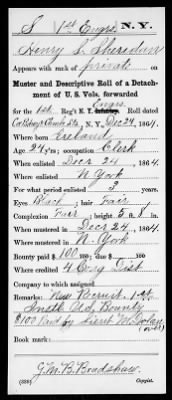 S 1st Engrs N.Y.
Henry S. Sheredan
Appears with rank of private on
Muster and Descriptive Roll of a Detach-
ment of U. S. Vols. forwarded
Engrs.
for the 1st Reg't N.Y. Infantry. Roll dated
N.Y., Dec 24, 1864.
Where born Ireland
Age 24 y'rs; occupation Clerk
When enlisted Decr 24, 1864.
Where enlisted N York
For what period enlisted 3 years.
Eyes Black; hair Fair
Complexion Fair; height 5 ft. 8 in.
When mustered in Decr 24, 1864.
Where mustered in N. York
Bounty paid $ 100; due $ 100
Where credited 4 Cong Dist
Company to which assigned
Remarks: New Recruit. 1st
Instlt Adv. Bounty
$100 Paid by Lieut M. Dolan
Book mark:
G.W.B. Bradshaw
(339) Copyist.